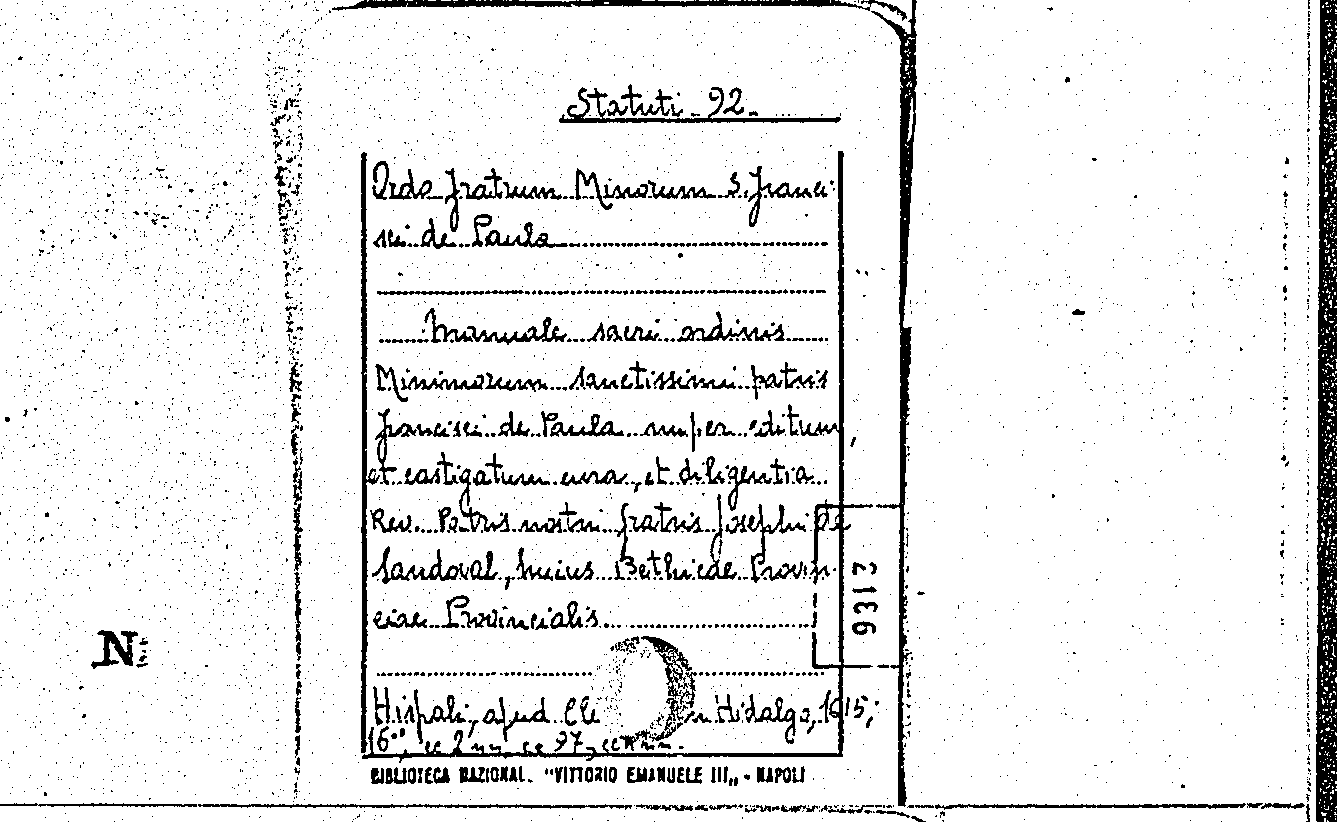 Statuti - 92 -
Ordo fratrum Minorum S. Franci-
sci de Paula
Manuale sacri ordinis
Minimorum sanctissimi patris
Francisci de Paula nuper editum,
et castigatum cura, et diligentia
Rev. Patris nostri fratris Josephi de
Sandoval, huius Bethicae Provin-
ciae Provincialis
9317
N:
Hispali, apud Cle Hidalgo, 1615;
16°, cc 2 nn cc 97,
BIBLIOTECA NAZIONAL. "VITTORIO EMANUELE III„ - NAPOLI